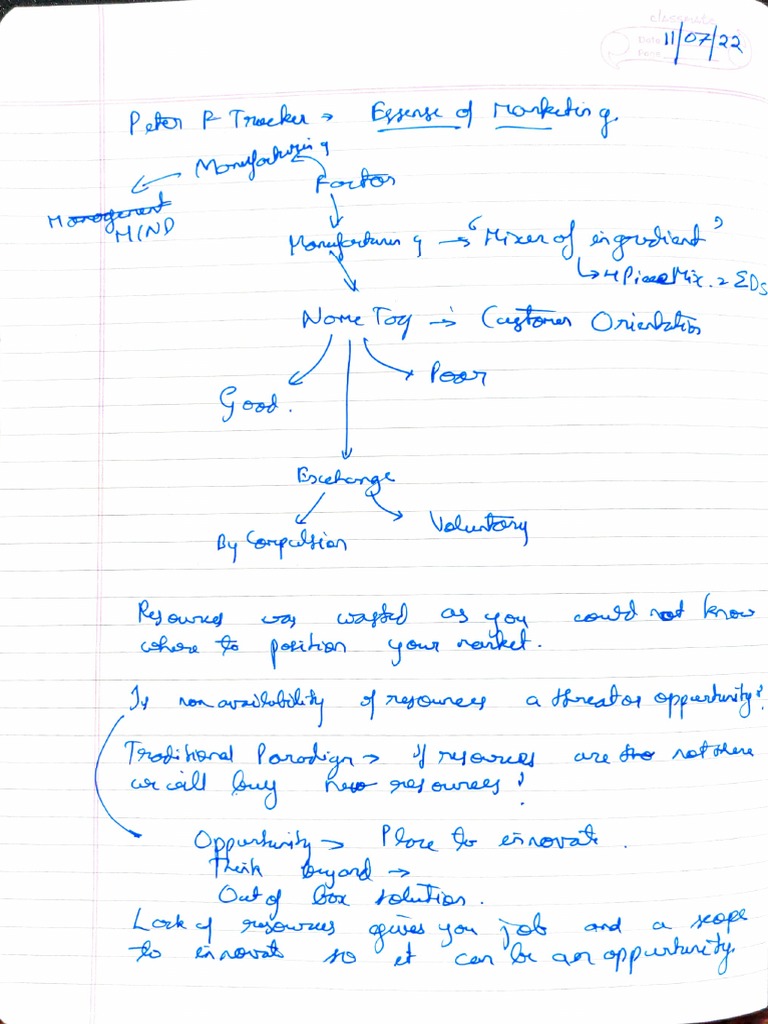 classmate
Date 11/07/22
Page
Peter F Trucker → Essense of Marketing.
Manufacturing
Factor
Management
MIND
Manufacturing → "Mixer of ingredient"
↳ 4 Mix. = EDs
Name Tag → Customer Orientation
Poor
Good.
Exchange
By Compulsion Voluntary
Resources was wasted as you could not know
where to position your market.
Is non availability of resources a threat or opportunity?
Traditional Paradign → if resources are tho not there
we will buy new resources!
Oppurtunity → Place to innovate.
Think beyond →
Out of box solution.
Lack of resources gives you job and a scope
to innovate so it can be an oppurtunity.